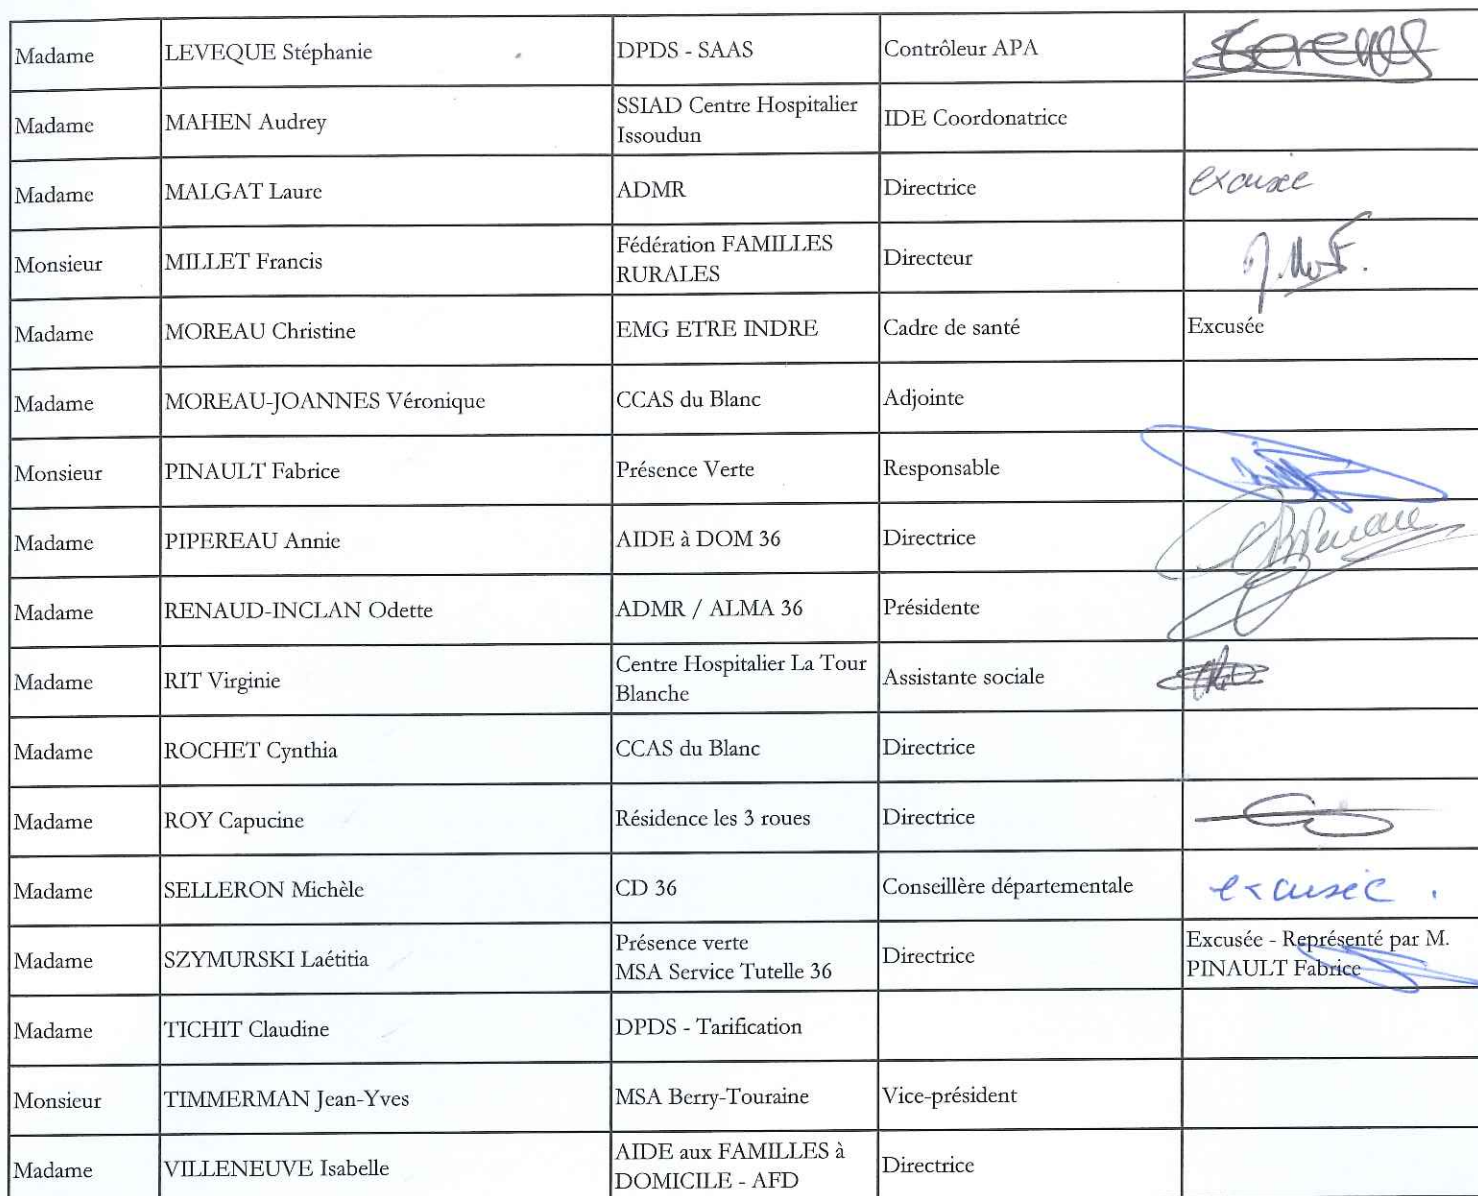 Madame LEVEQUE Stéphanie DPDS - SAAS Contrôleur APA
Madame MAHEN Audrey SSIAD Centre Hospitalier
Issoudun IDE Coordonatrice
Madame MALGAT Laure ADMR Directrice excusée
Monsieur MILLET Francis Fédération FAMILLES
RURALES Directeur
Madame MOREAU Christine EMG ETRE INDRE Cadre de santé Excusée
Madame MOREAU-JOANNES Véronique CCAS du Blanc Adjointe
Monsieur PINAULT Fabrice Présence Verte Responsable
Madame PIPEREAU Annie AIDE à DOM 36 Directrice
Madame RENAUD-INCLAN Odette ADMR / ALMA 36 Présidente
Madame RIT Virginie Centre Hospitalier La Tour
Blanche Assistante sociale
Madame ROCHET Cynthia CCAS du Blanc Directrice
Madame ROY Capucine Résidence les 3 roues Directrice
Madame SELLERON Michèle CD 36 Conseillère départementale excusée.
Madame SZYMURSKI Laétitia Présence verte
MSA Service Tutelle 36 Directrice Excusée - Représenté par M.
PINAULT Fabrice
Madame TICHIT Claudine DPDS - Tarification
Monsieur TIMMERMAN Jean-Yves MSA Berry-Touraine Vice-président
Madame VILLENEUVE Isabelle AIDE aux FAMILLES à
DOMICILE - AFD Directrice